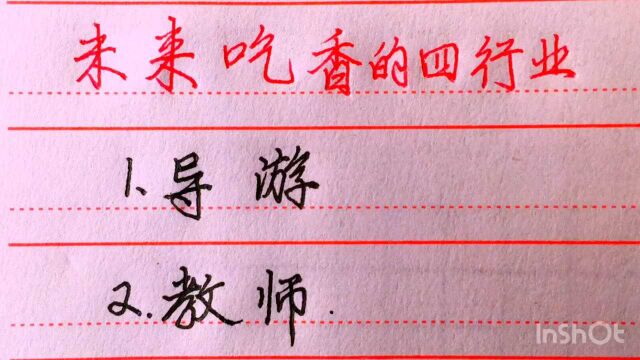 未来吃香的四行业
1.导游
2.教师.
InShOt